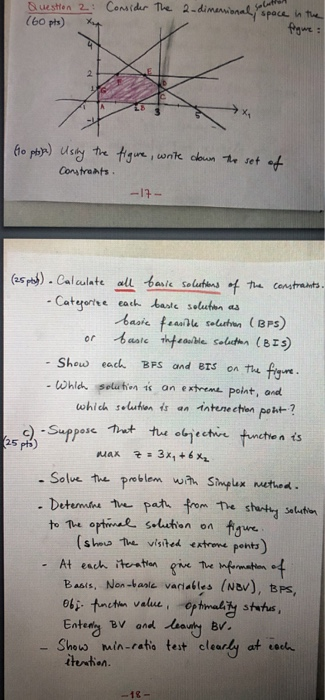 Question 2: Consider the 2-dimensional solution space in the
(60 pts)
figure:
X₂
4
2
1
-1
A
B
C
D
E
F
G
3
5
X₁
(10 pts) a) Using the figure, write down the set of
constraints.
-17-
(25 pts) b) - Calculate all basic solutions of the constraints.
- Categorize each basic solution as
basic feasible solution (BFS)
or basic infeasible solution (BIS)
- Show each BFS and BIS on the figure.
- Which solution is an extreme point, and
which solution is an intersection point?
c) - Suppose that the objective function is
(25 pts)
max z = 3x₁ + 6x₂
- Solve the problem with Simplex method.
- Determine the path from the starting solution
to the optimal solution on figure.
(show the visited extreme points)
- At each iteration give the information of
Basis, Non-basic variables (NBV), BFS,
Obj. function value, optimality status,
Entering BV and leaving BV.
- Show min-ratio test clearly at each
iteration.
-18-